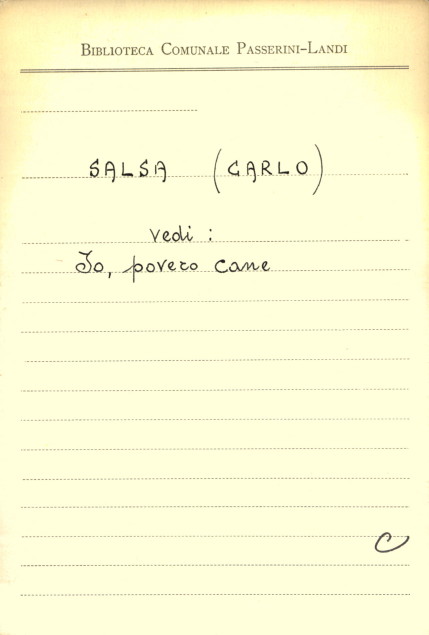 BIBLIOTECA COMUNALE PASSERINI-LANDI
SALSA (CARLO)
vedi :
Io, povero cane
C